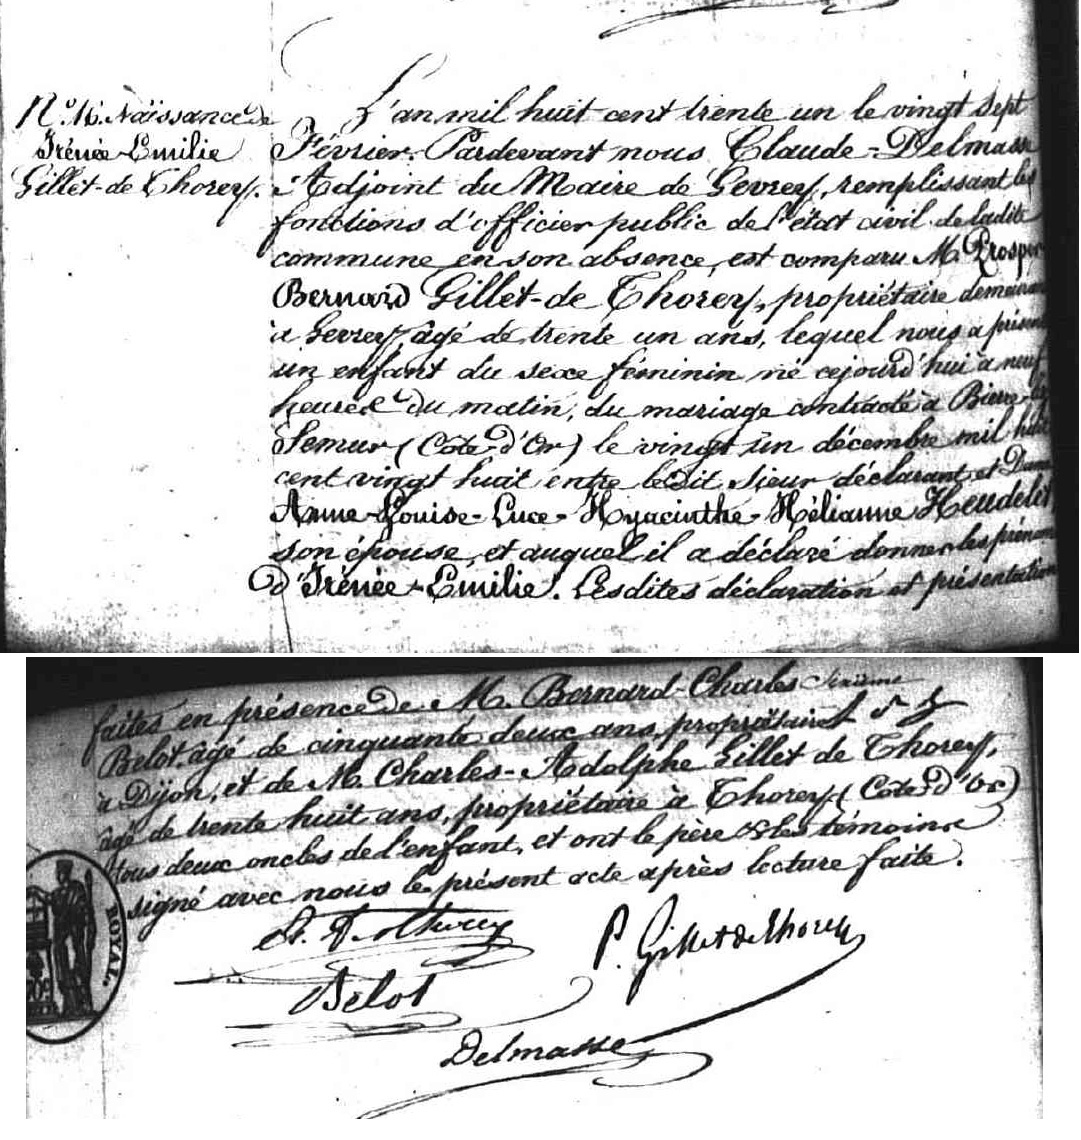 N.º 16. Naissance de
Irénée-Emilie
Gillet-de Thorey.
L'an mil huit cent trente un le vingt sept
Février. Pardevant nous Claude-Delmasse
Adjoint du Maire de Gevrey, remplissant les
fonctions d'officier public de l'état civil de ladite
commune en son absence, est comparu M. Prosper
Bernard Gillet-de Thorey, propriétaire demeurant
à Gevrey âgé de trente un ans, lequel nous a présenté
un enfant du sexe féminin né cejourd'hui à neuf
heures du matin, du mariage contracté à Bierre-lès
Semur (Cote-d'Or) le vingt un décembre mil huit
cent vingt huit entre ledit sieur déclarant et Dame
Anne-Louise-Luce-Hyacinthe-Mélianne Heudelet
son épouse, et auquel il a déclaré donner les prénoms
d'Irénée-Emilie. Lesdites déclaration et présentation
faites en présence de M. Bernard-Charles
Belot âgé de cinquante deux ans, propriétaire
à Dijon, et de M. Charles-Adolphe Gillet de Thorey,
âgé de trente huit ans, propriétaire à Thorey (Cote-d'Or)
tous deux oncles de l'enfant, et ont le père & les témoins
signé avec nous le présent acte après lecture faite.
P. Gillet de Thorey
Belot
Delmasse
ROYAL.